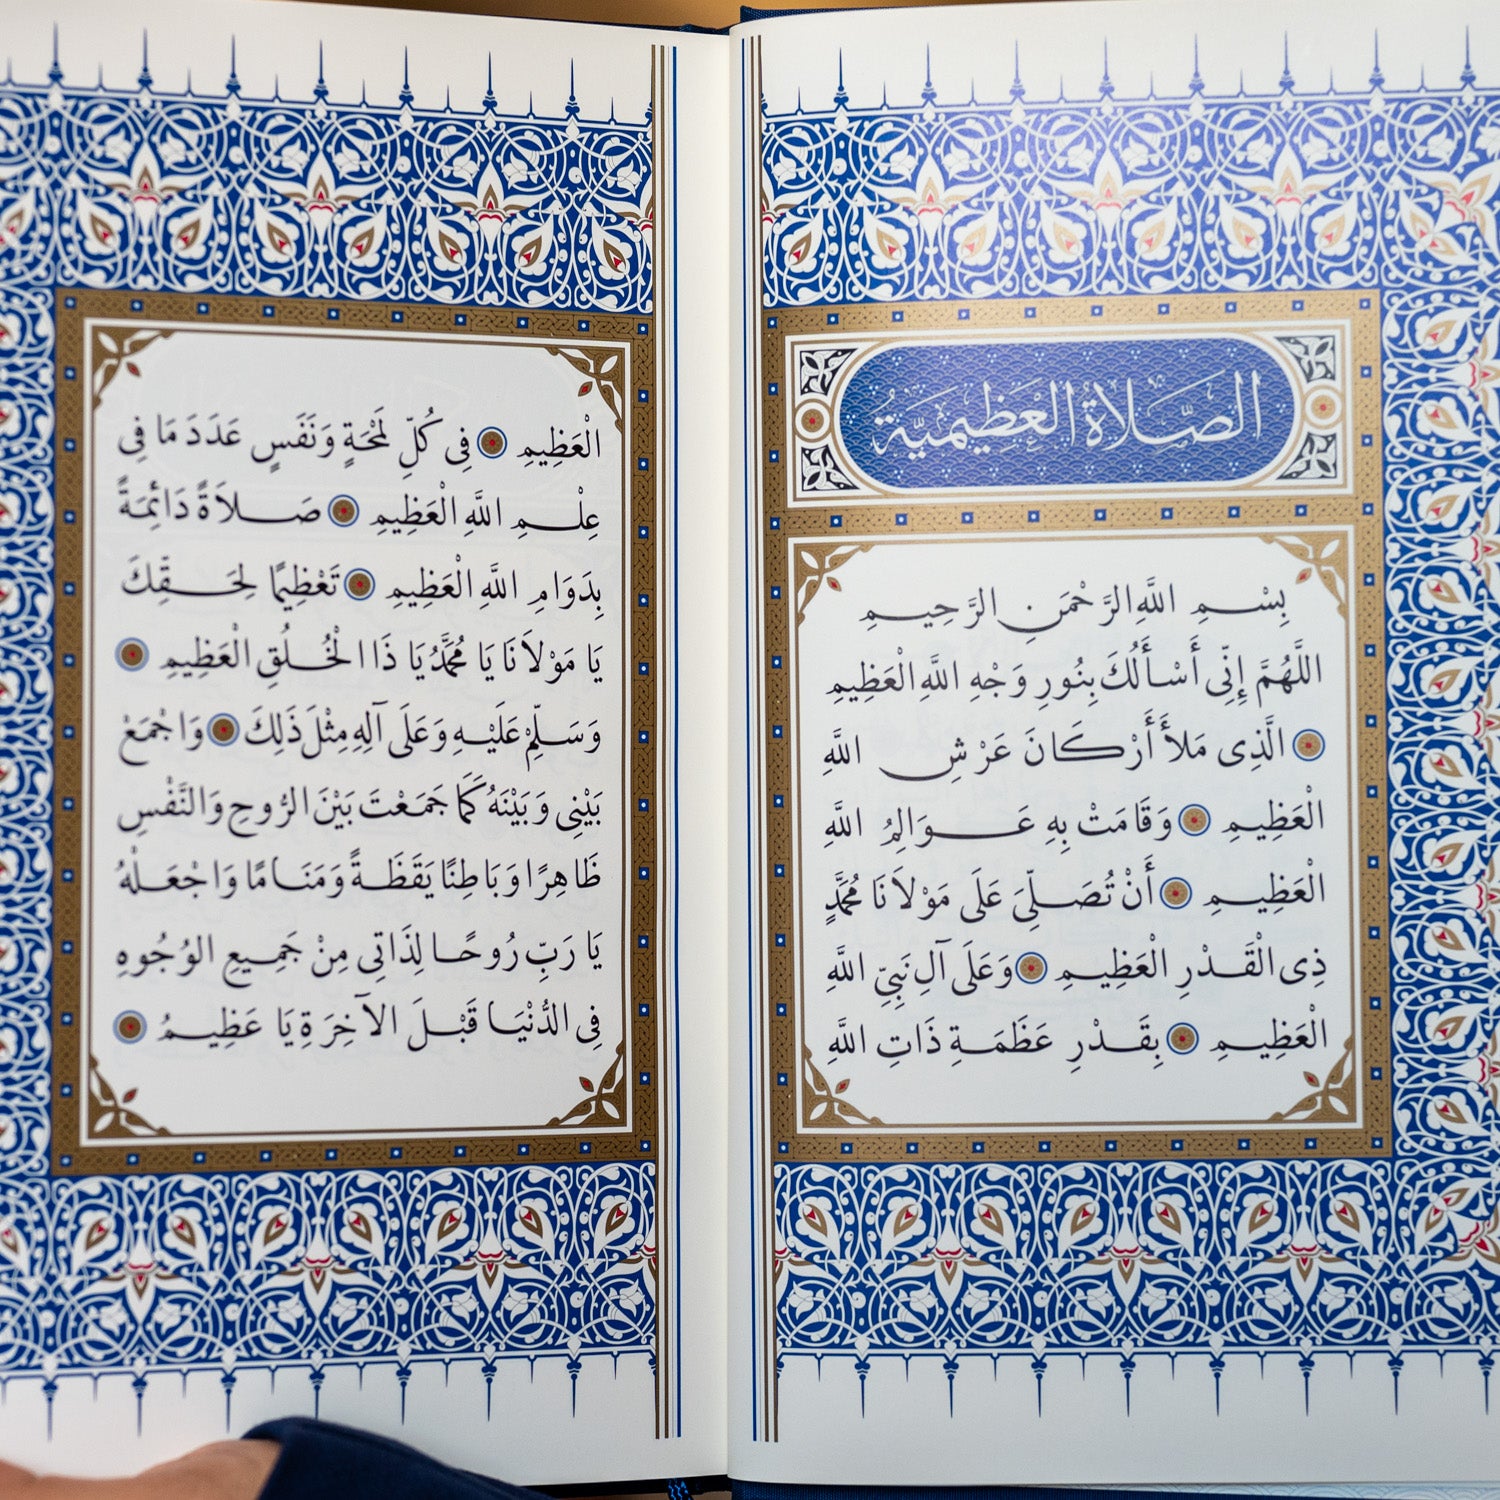 الصَّلَاةُ الْعَظِيمِيَّةُ
بِسْمِ اللَّهِ الرَّحْمَنِ الرَّحِيمِ
اللَّهُمَّ إِنِّى أَسْأَلُكَ بِنُورِ وَجْهِ اللَّهِ الْعَظِيمِ
الَّذِى مَلَأَ أَرْكَانَ عَرْشِ اللَّهِ
الْعَظِيمِ وَقَامَتْ بِهِ عَوَالِمُ اللَّهِ
الْعَظِيمِ أَنْ تُصَلِّىَ عَلَى مَوْلَانَا مُحَمَّدٍ
ذِى الْقَدْرِ الْعَظِيمِ وَعَلَى آلِ نَبِىِّ اللَّهِ
الْعَظِيمِ بِقَدْرِ عَظَمَةِ ذَاتِ اللَّهِ
الْعَظِيمِ فِى كُلِّ لَمْحَةٍ وَنَفَسٍ عَدَدَ مَا فِى
عِلْمِ اللَّهِ الْعَظِيمِ صَلَاةً دَائِمَةً
بِدَوَامِ اللَّهِ الْعَظِيمِ تَعْظِيمًا لِحَقِّكَ
يَا مَوْلَانَا يَا مُحَمَّدُ يَا ذَا الْخُلُقِ الْعَظِيمِ
وَسَلِّمْ عَلَيْهِ وَعَلَى آلِهِ مِثْلَ ذَلِكَ وَاجْمَعْ
بَيْنِى وَبَيْنَهُ كَمَا جَمَعْتَ بَيْنَ الرُّوحِ وَالنَّفْسِ
ظَاهِرًا وَبَاطِنًا يَقَظَةً وَمَنَامًا وَاجْعَلْهُ
يَا رَبِّ رُوحًا لِذَاتِى مِنْ جَمِيعِ الْوُجُوهِ
فِى الدُّنْيَا قَبْلَ الْآخِرَةِ يَا عَظِيمُ